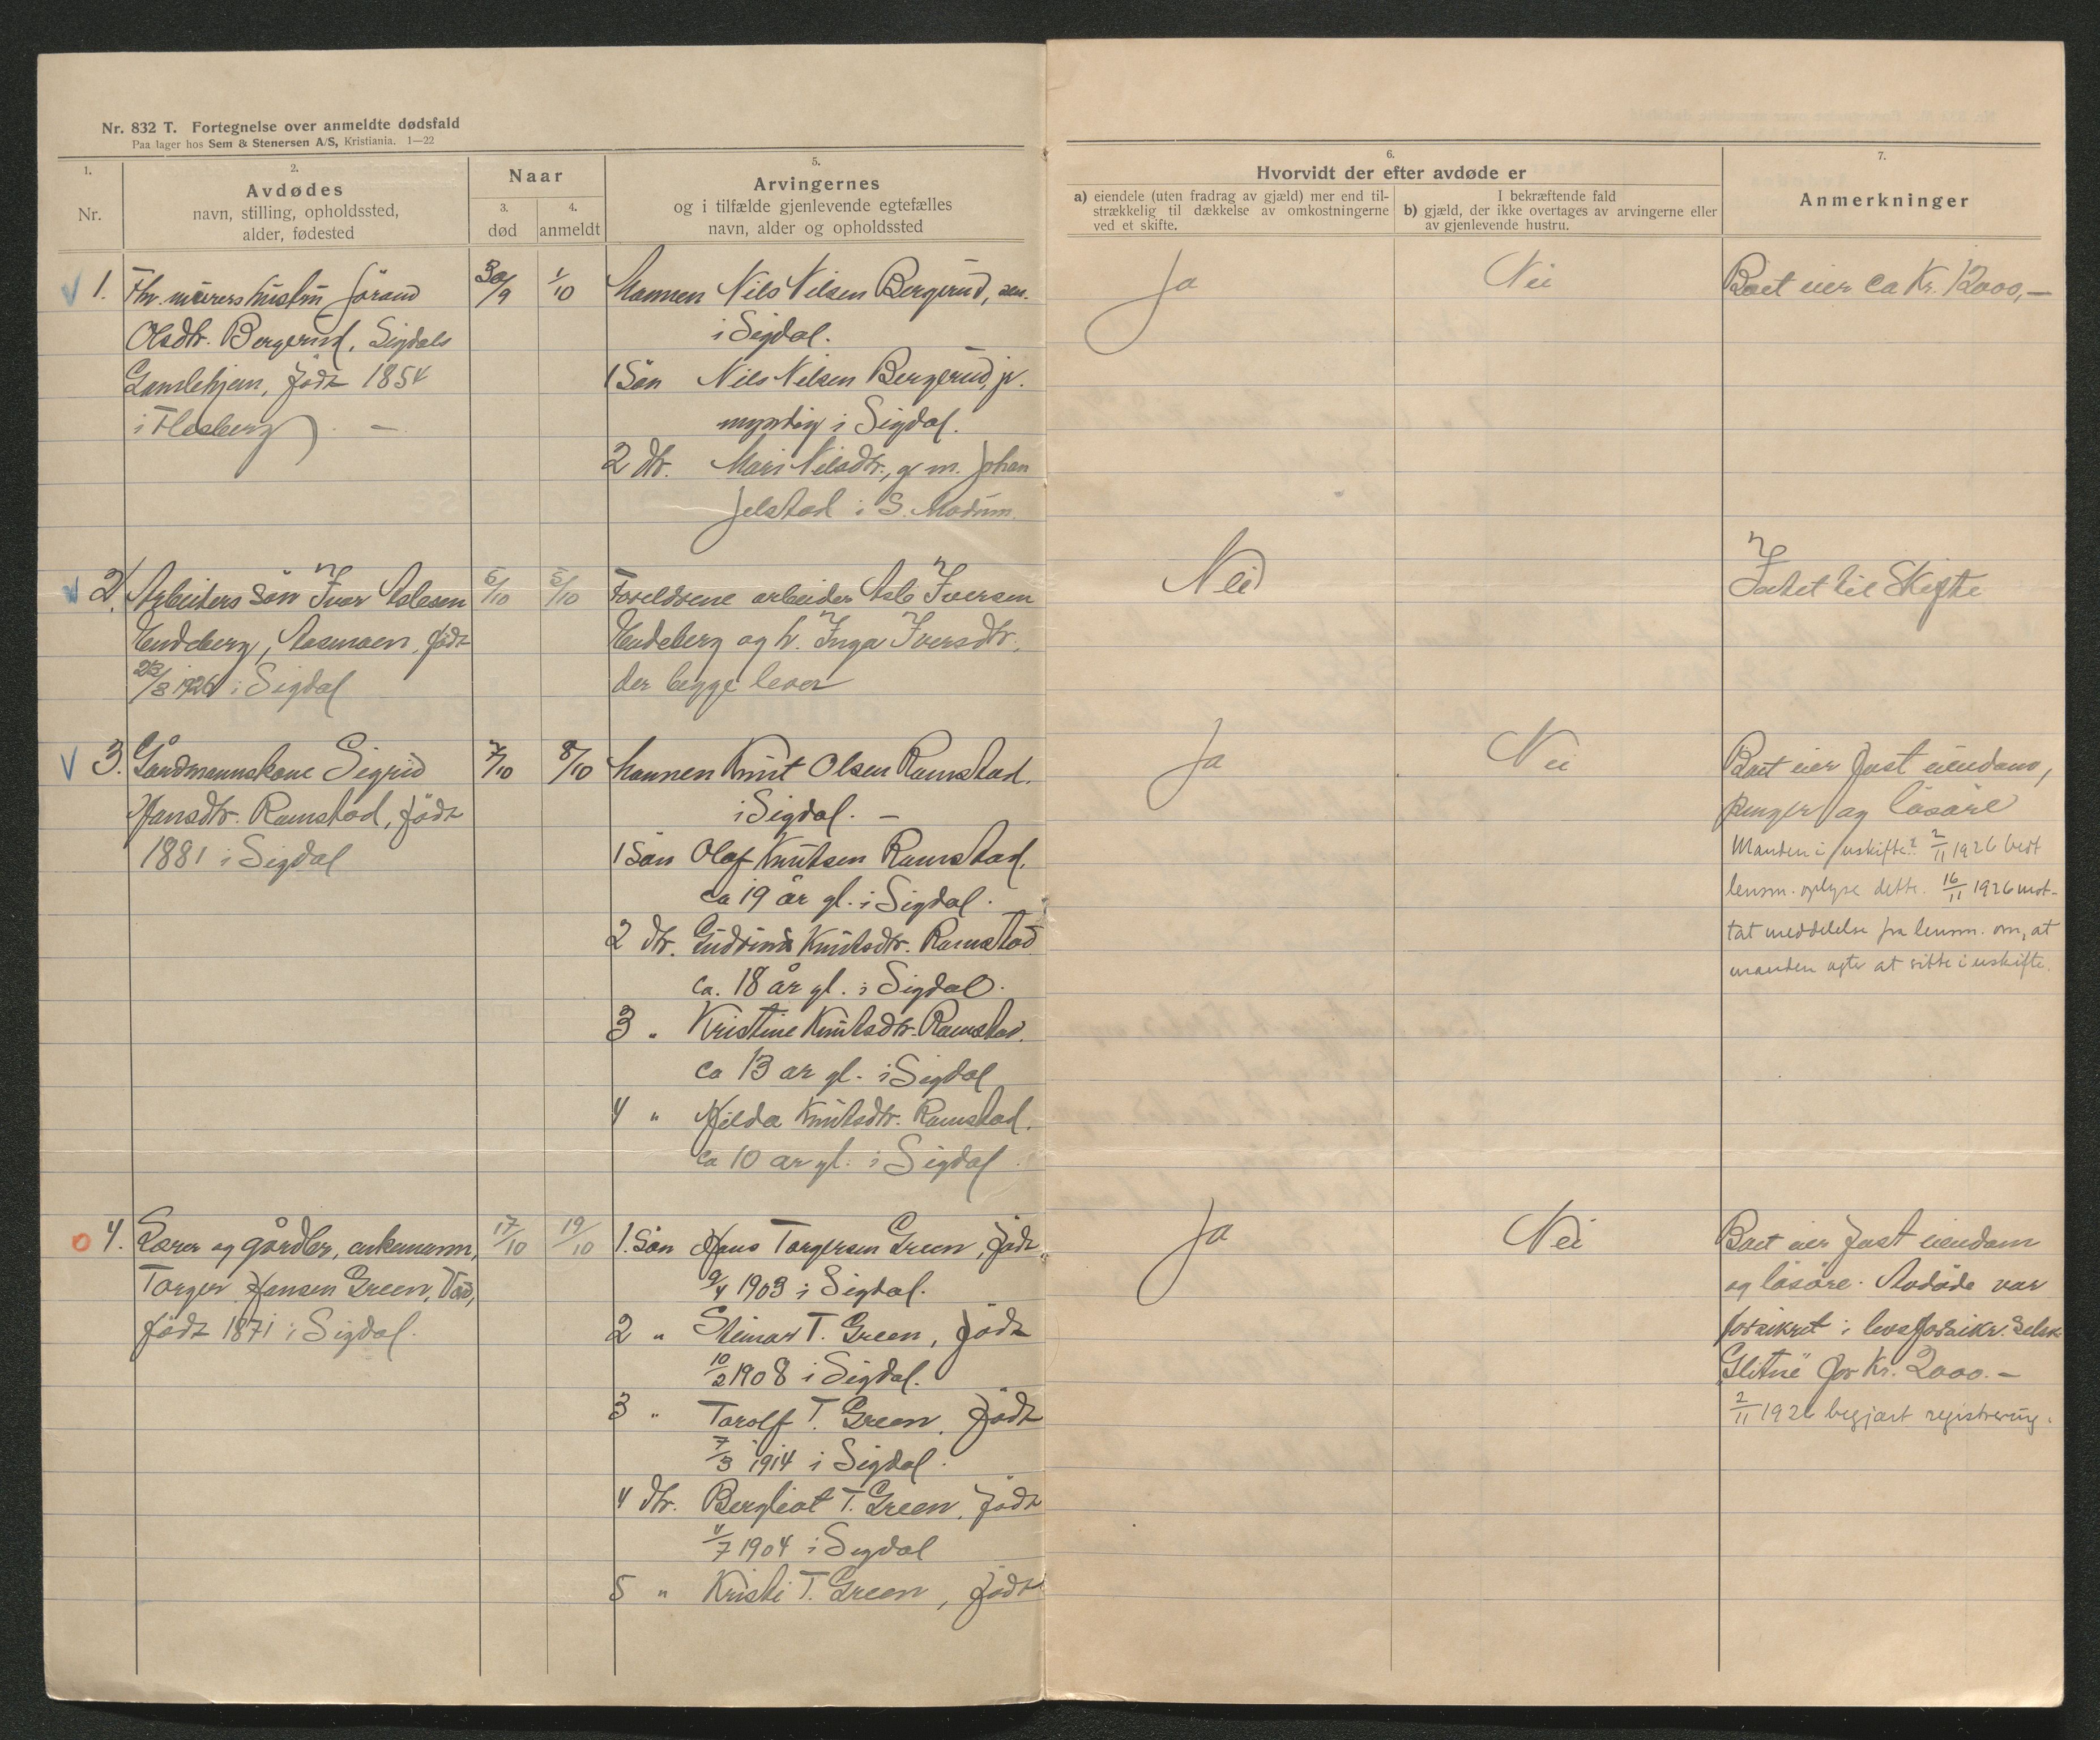 Nr. 832 T. Fortegnelse over anmeldte dødsfald
Paa lager hos Sem & Stenersen A/S, Kristiania. 1—22
1.
Nr.
2.
Avdødes
navn, stilling, opholdssted,
alder, fødested
Naar
3.
død
4.
anmeldt
5.
Arvingernes
og i tilfælde gjenlevende egtefælles
navn, alder og opholdssted
6.
Hvorvidt der efter avdøde er
a) eiendele (uten fradrag av gjæld) mer end til-
strækkelig til dækkelse av omkostningerne
ved et skifte.
I bekræftende fald
b) gjæld, der ikke overtages av arvingerne eller
av gjenlevende hustru.
7.
Anmerkninger
1. Fhv. murers hustru Jörand
Olsdtr. Bergerud, Sigdals
Gamlehjem, född 1854
i Flesberg. —
30/9
1/10
Mannen Nils Nilsen Bergerud, sen.
i Sigdal.
1 Sön Nils Nilsen Bergerud, jr.
myndig i Sigdal.
2 dtr. Mari Nilsdtr., g. m. Johan
Jelstad i S. Modum.
Ja
Nei
Boet eier ca Kr. 12000,—
2. Arbeiders sön Iver Aslesen
Endeberg, Aasmoen, född
23/8 1926 i Sigdal
5/10
5/10
Foreldrene arbeider Asle Iversen
Endeberg og h. Inga Iversdtr.,
der begge lever
Nei
Intet til Skifte
3. Gårdmannskone Sigrid
Hansdtr. Ramstad, född
1881 i Sigdal
7/10
8/10
Mannen Knut Olsen Ramstad.
i Sigdal. —
1 Sön Olaf Knutsen Ramstad,
ca 19 år gl. i Sigdal.
2 dtr. Gudrun Knutsdtr. Ramstad
ca. 18 år gl. i Sigdal.
3 " Kristine Knutsdtr. Ramstad.
ca 13 år gl. i Sigdal
4 " Hilda Knutsdtr. Ramstad.
ca 10 år gl. i Sigdal.
Ja
Nei
Boet eier fast eiendom,
penger og lösöre
Manden i uskifte? 2/11 1926 bedt
lensm. oplyse dette. 16/11 1926 mot-
tat meddelelse fra lensm. om, at
manden agter at sitte i uskifte.
4. Lærer og gårdbr., enkemann,
Torger Hansen Green,
född 1871 i Sigdal.
17/10
19/10
1. Sön Hans Torgersen Green, född
9/4 1903 i Sigdal.
2 " Steinar T. Green, född
10/2 1908 i Sigdal.
3 " Torolf T. Green, född
7/3 1914 i Sigdal.
4 dtr. Bergliot T. Green, född
4/7 1904 i Sigdal
5 " Kristi T. Green, född
Ja
Nei
Boet eier fast eiendom
og lösöre. Avdöde var
forsikret i livsforsikr. selsk.
"Glitne" for Kr. 2000.—
2/11 1926 begjært registrering.